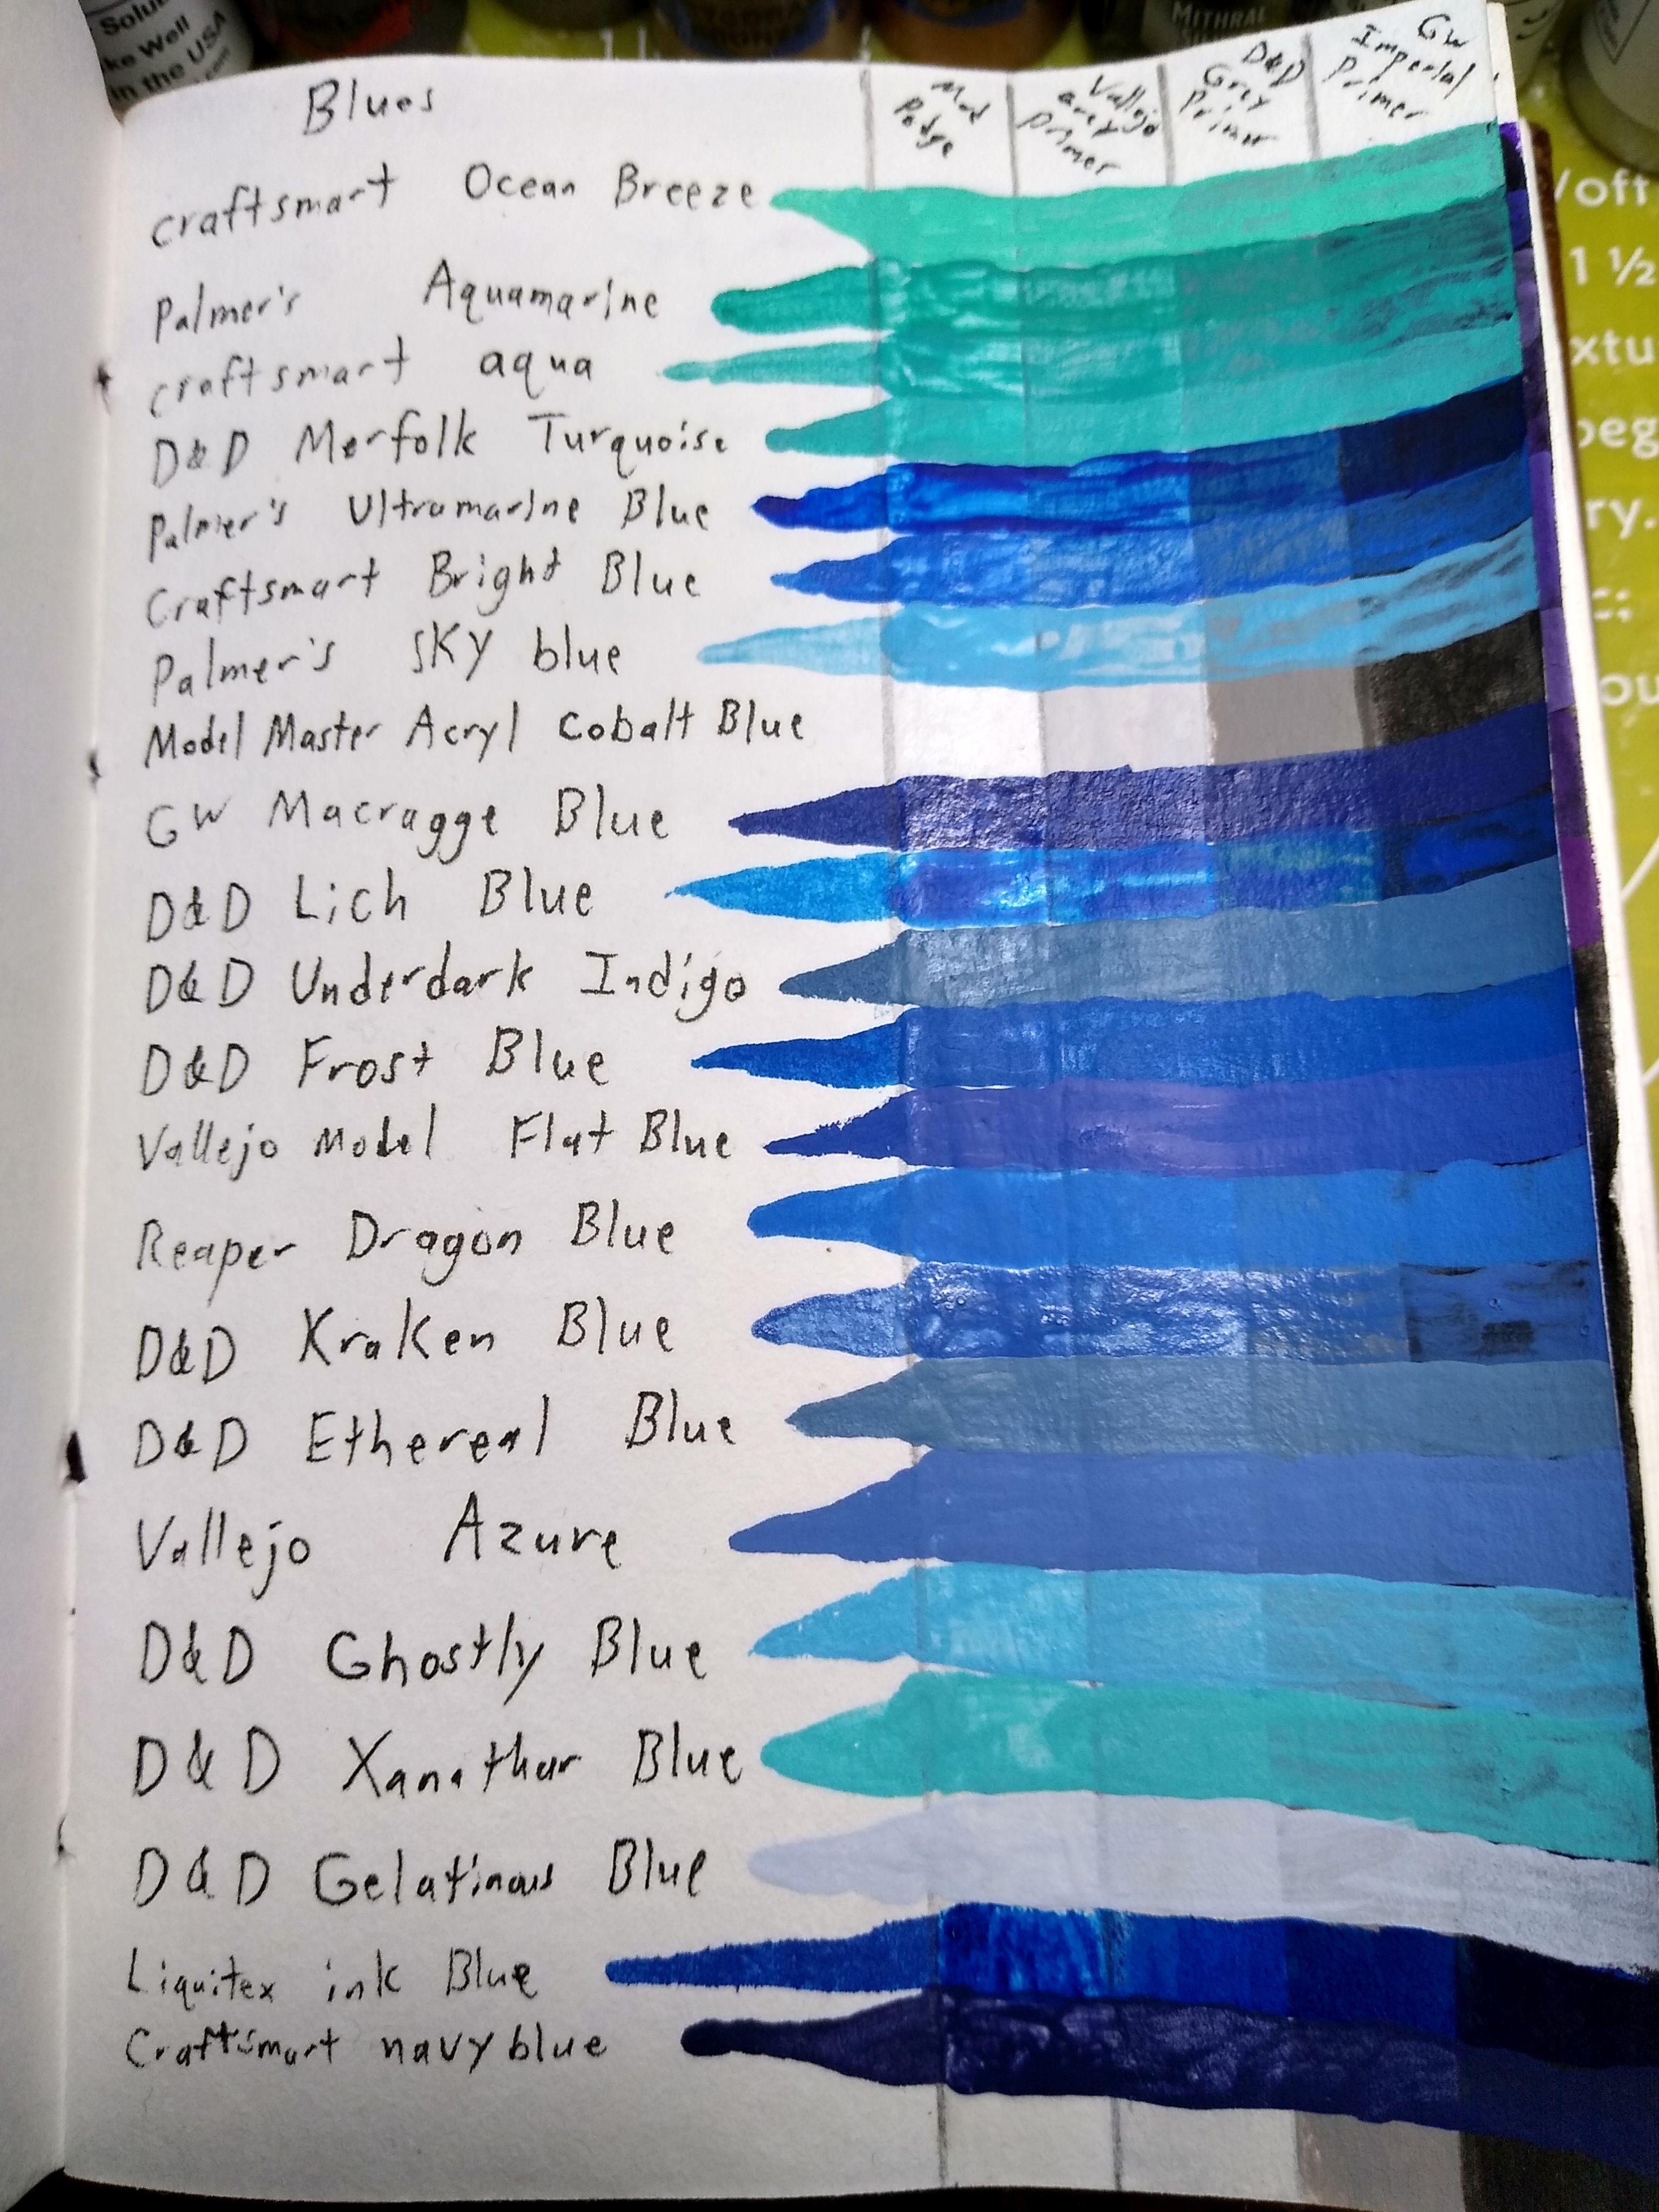 Solu
ke Well
in the USA
MITHRAL
Blues
Mod
Podge
Vallejo
grey
primer
D&D
Grey
Primer
GW
Imperial
Primer
craftsmart Ocean Breeze
Palmer's Aquamarine
craftsmart aqua
D&D Merfolk Turquoise
Palmer's Ultramarine Blue
Craftsmart Bright Blue
Palmer's SKY blue
Model Master Acryl Cobalt Blue
GW Macragge Blue
D&D Lich Blue
D&D Underdark Indigo
D&D Frost Blue
Vallejo Model Flat Blue
Reaper Dragon Blue
D&D Kraken Blue
D&D Ethereal Blue
Vallejo Azure
D&D Ghostly Blue
D&D Xanathar Blue
D&D Gelatinous Blue
Liquitex ink Blue
Craftsmart navy blue
/off
1 ½
xtu
beg
ry.
c:
ou